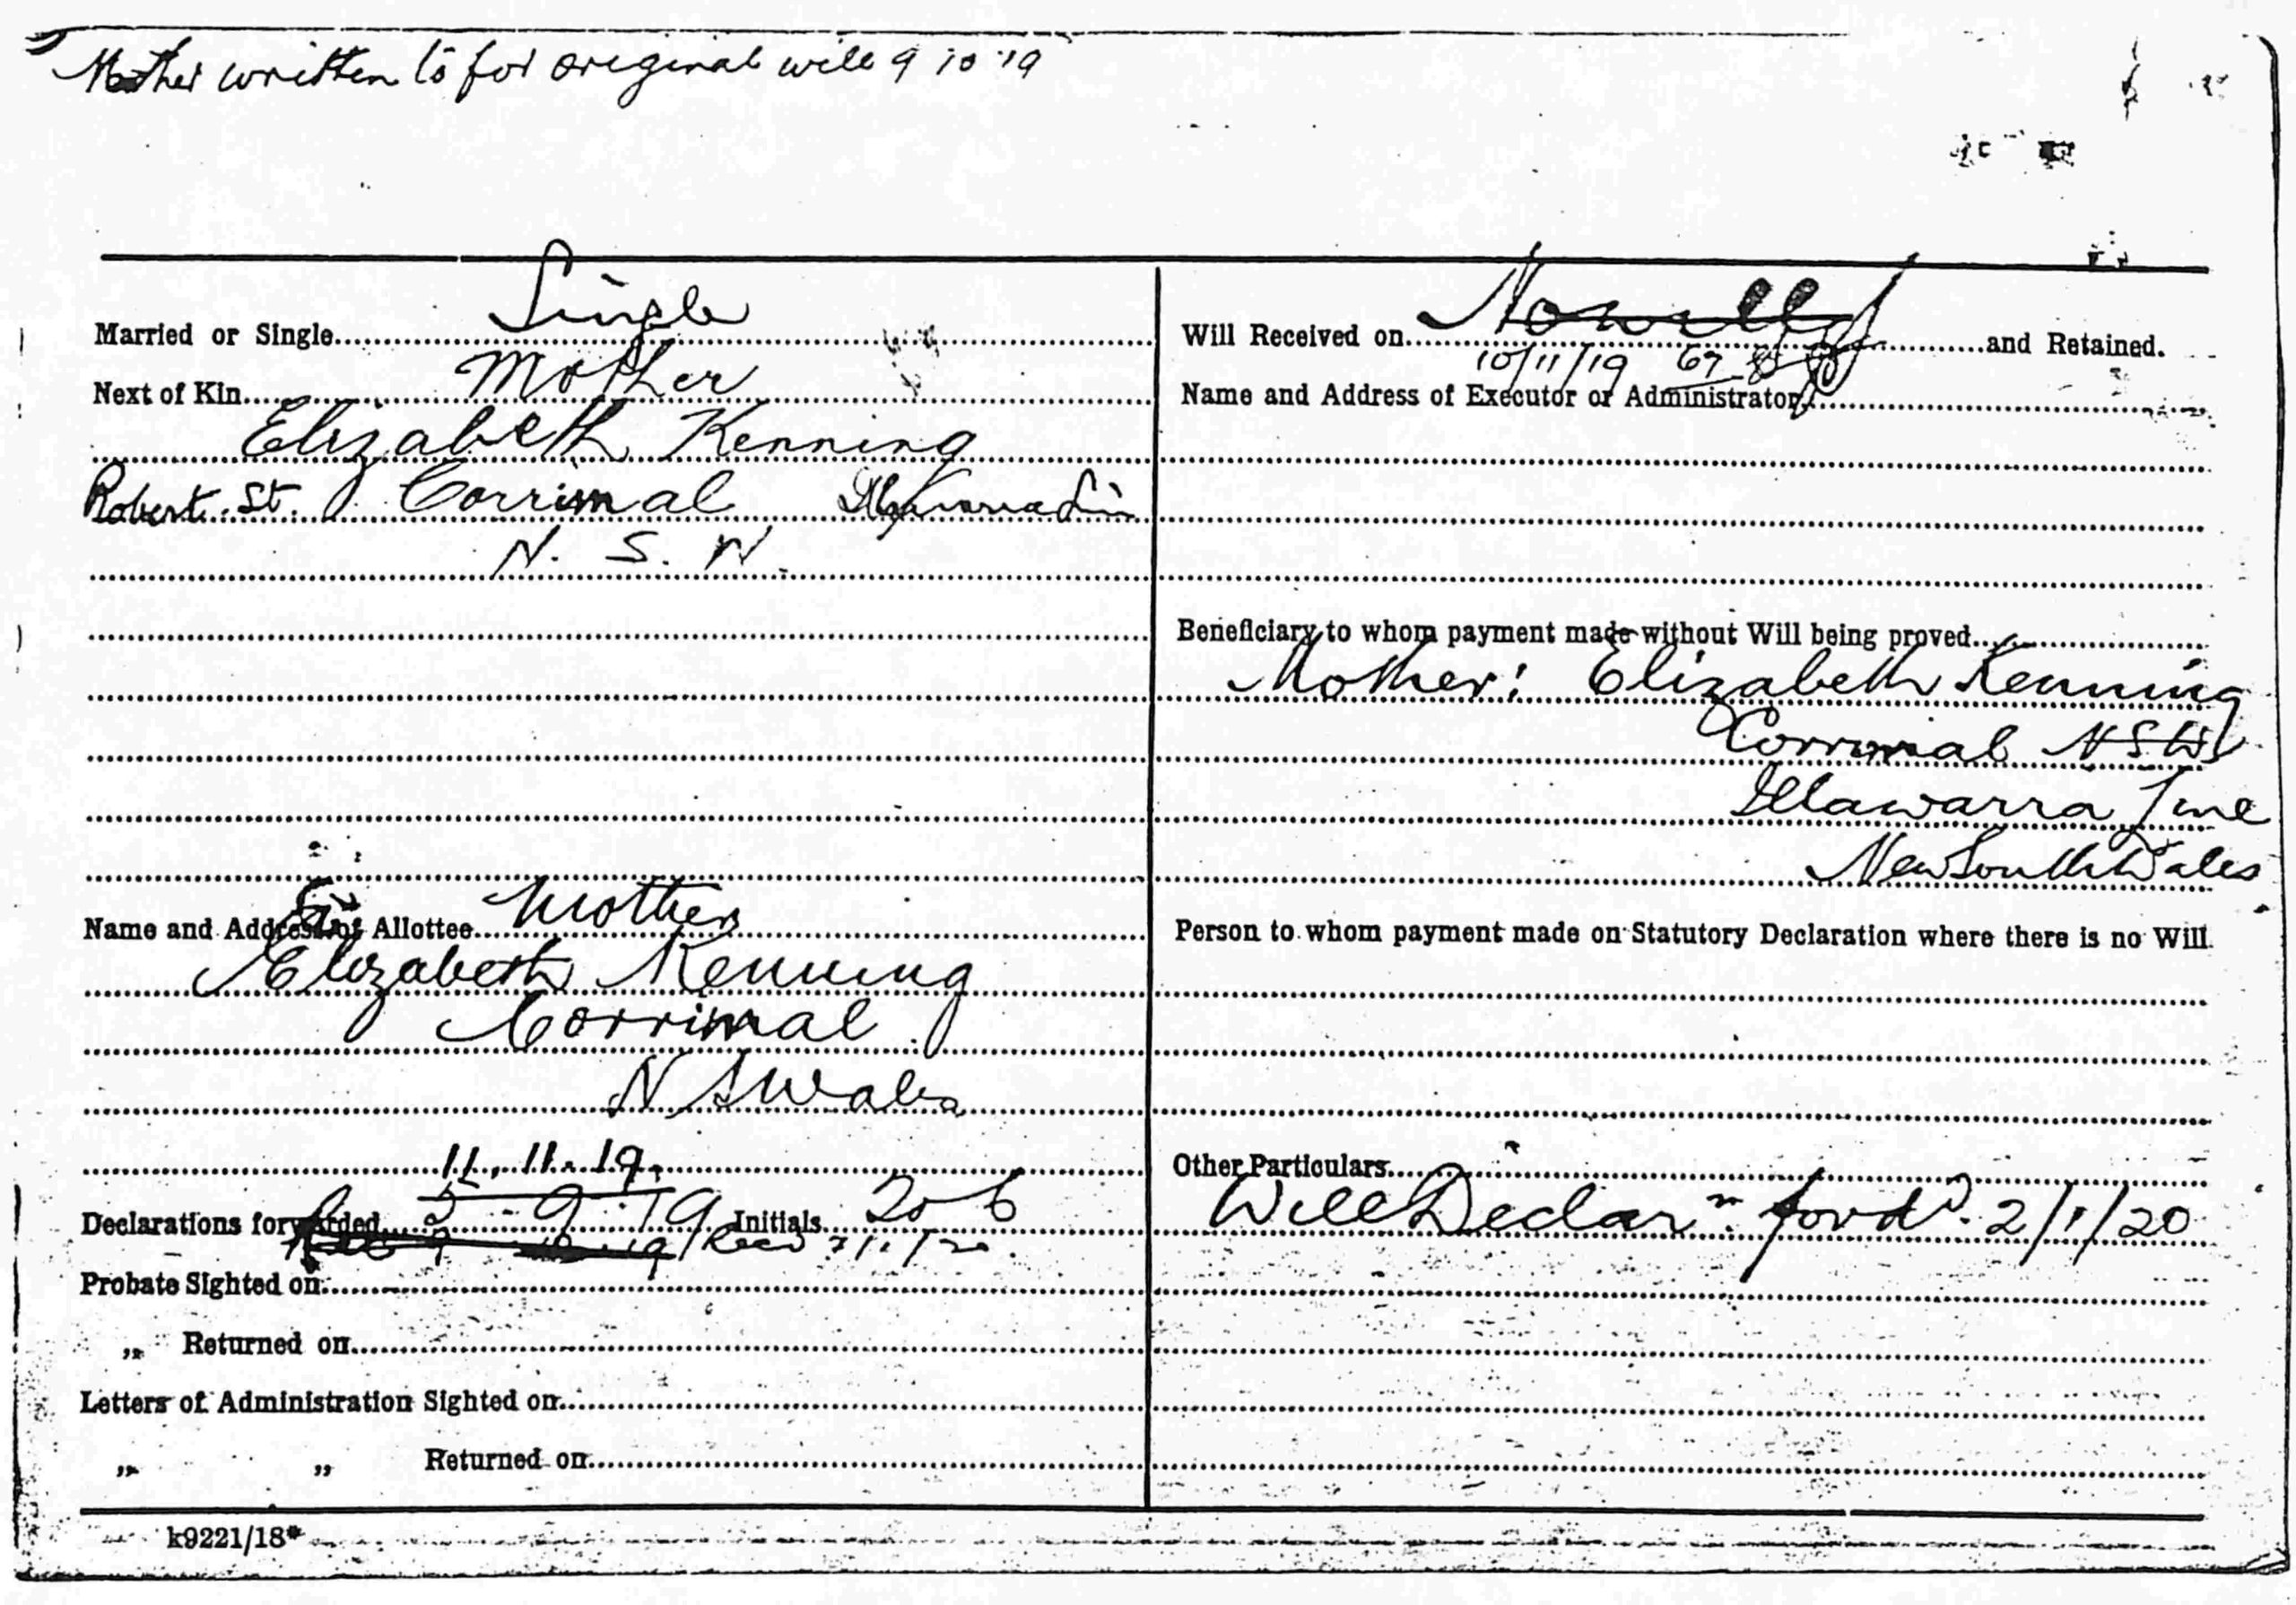 Mother written to for original will 9 10 19
Married or Single Single
Next of Kin Mother
Elizabeth Kenning
Robert St. Corrimal Illawarra Lin
N. S. W.
Name and Address of Allottee Mother
Elizabeth Kenning
Corrimal
N S Wales
11. 11. 19.
Declarations forwarded 5 9 19 Initials
Probate Sighted on
„ Returned on
Letters of Administration Sighted on
„ „ Returned on
k9221/18*
Will Received on No will and Retained.
10/11/19 67
Name and Address of Executor or Administrator
Beneficiary to whom payment made without Will being proved
Mother: Elizabeth Kenning
Corrimal N S W
Illawarra Line
New South Wales
Person to whom payment made on Statutory Declaration where there is no Will.
Other Particulars
Will Declarn. forwd. 2/1/20